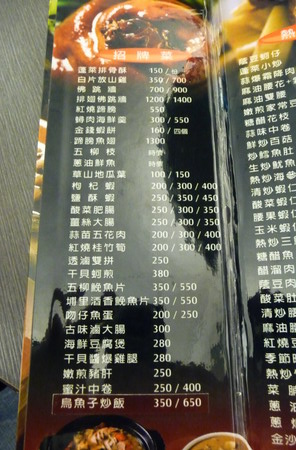 招牌菜
蓬萊排骨酥 150/份
白片放山雞 350/700
佛跳牆 700/900
排翅佛跳牆 1200/1400
紅燒蹄膀 550
鱘肉海鮮羹 300/550
金錢蝦餅 160/四個
蹄膀魚翅 1300
五柳枝 時價
蔥油鮮魚 時價
草山地瓜葉 100/150
枸杞蝦 200/300/400
鹽酥蝦 250/350/450
酸菜肥腸 250/300/350
薑絲大腸 250/300/350
蒜苗五花肉 200/300/400
紅燒桂竹筍 200/300/400
透滷雙拼 250
干貝蚵煎 380
五柳鮸魚片 350/550
埔里酒香鮸魚片 350/550
吻仔魚蛋 200/250
古味滷大腸 300
海鮮豆腐煲 280
干貝醬爆雞腿 280
嫩煎豬肝 250
蜜汁中卷 250/400
烏魚子炒飯 350/650
熱
蓬萊小炒
蒜爆霜降肉
麻油腰花
麻油雙腰
嫩煎家常豆
糖醋花枝
蒜味中卷
鮮炒百菇
炒鱈魚肚
生炒魷魚
熱炒海參
清炒蝦仁
酸菜蝦仁
腰果蝦仁
玉米蝦仁
熱炒三
糖醋魚
醋溜肉
酸菜肚
清炒腰
麻油
紅燒豆
季節